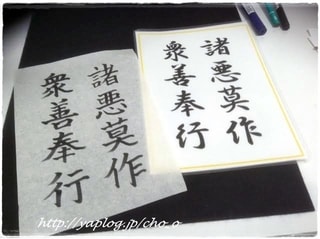 諸悪莫作
衆善奉行
諸悪莫作
衆善奉行
http://yaplog.jp/cho_o